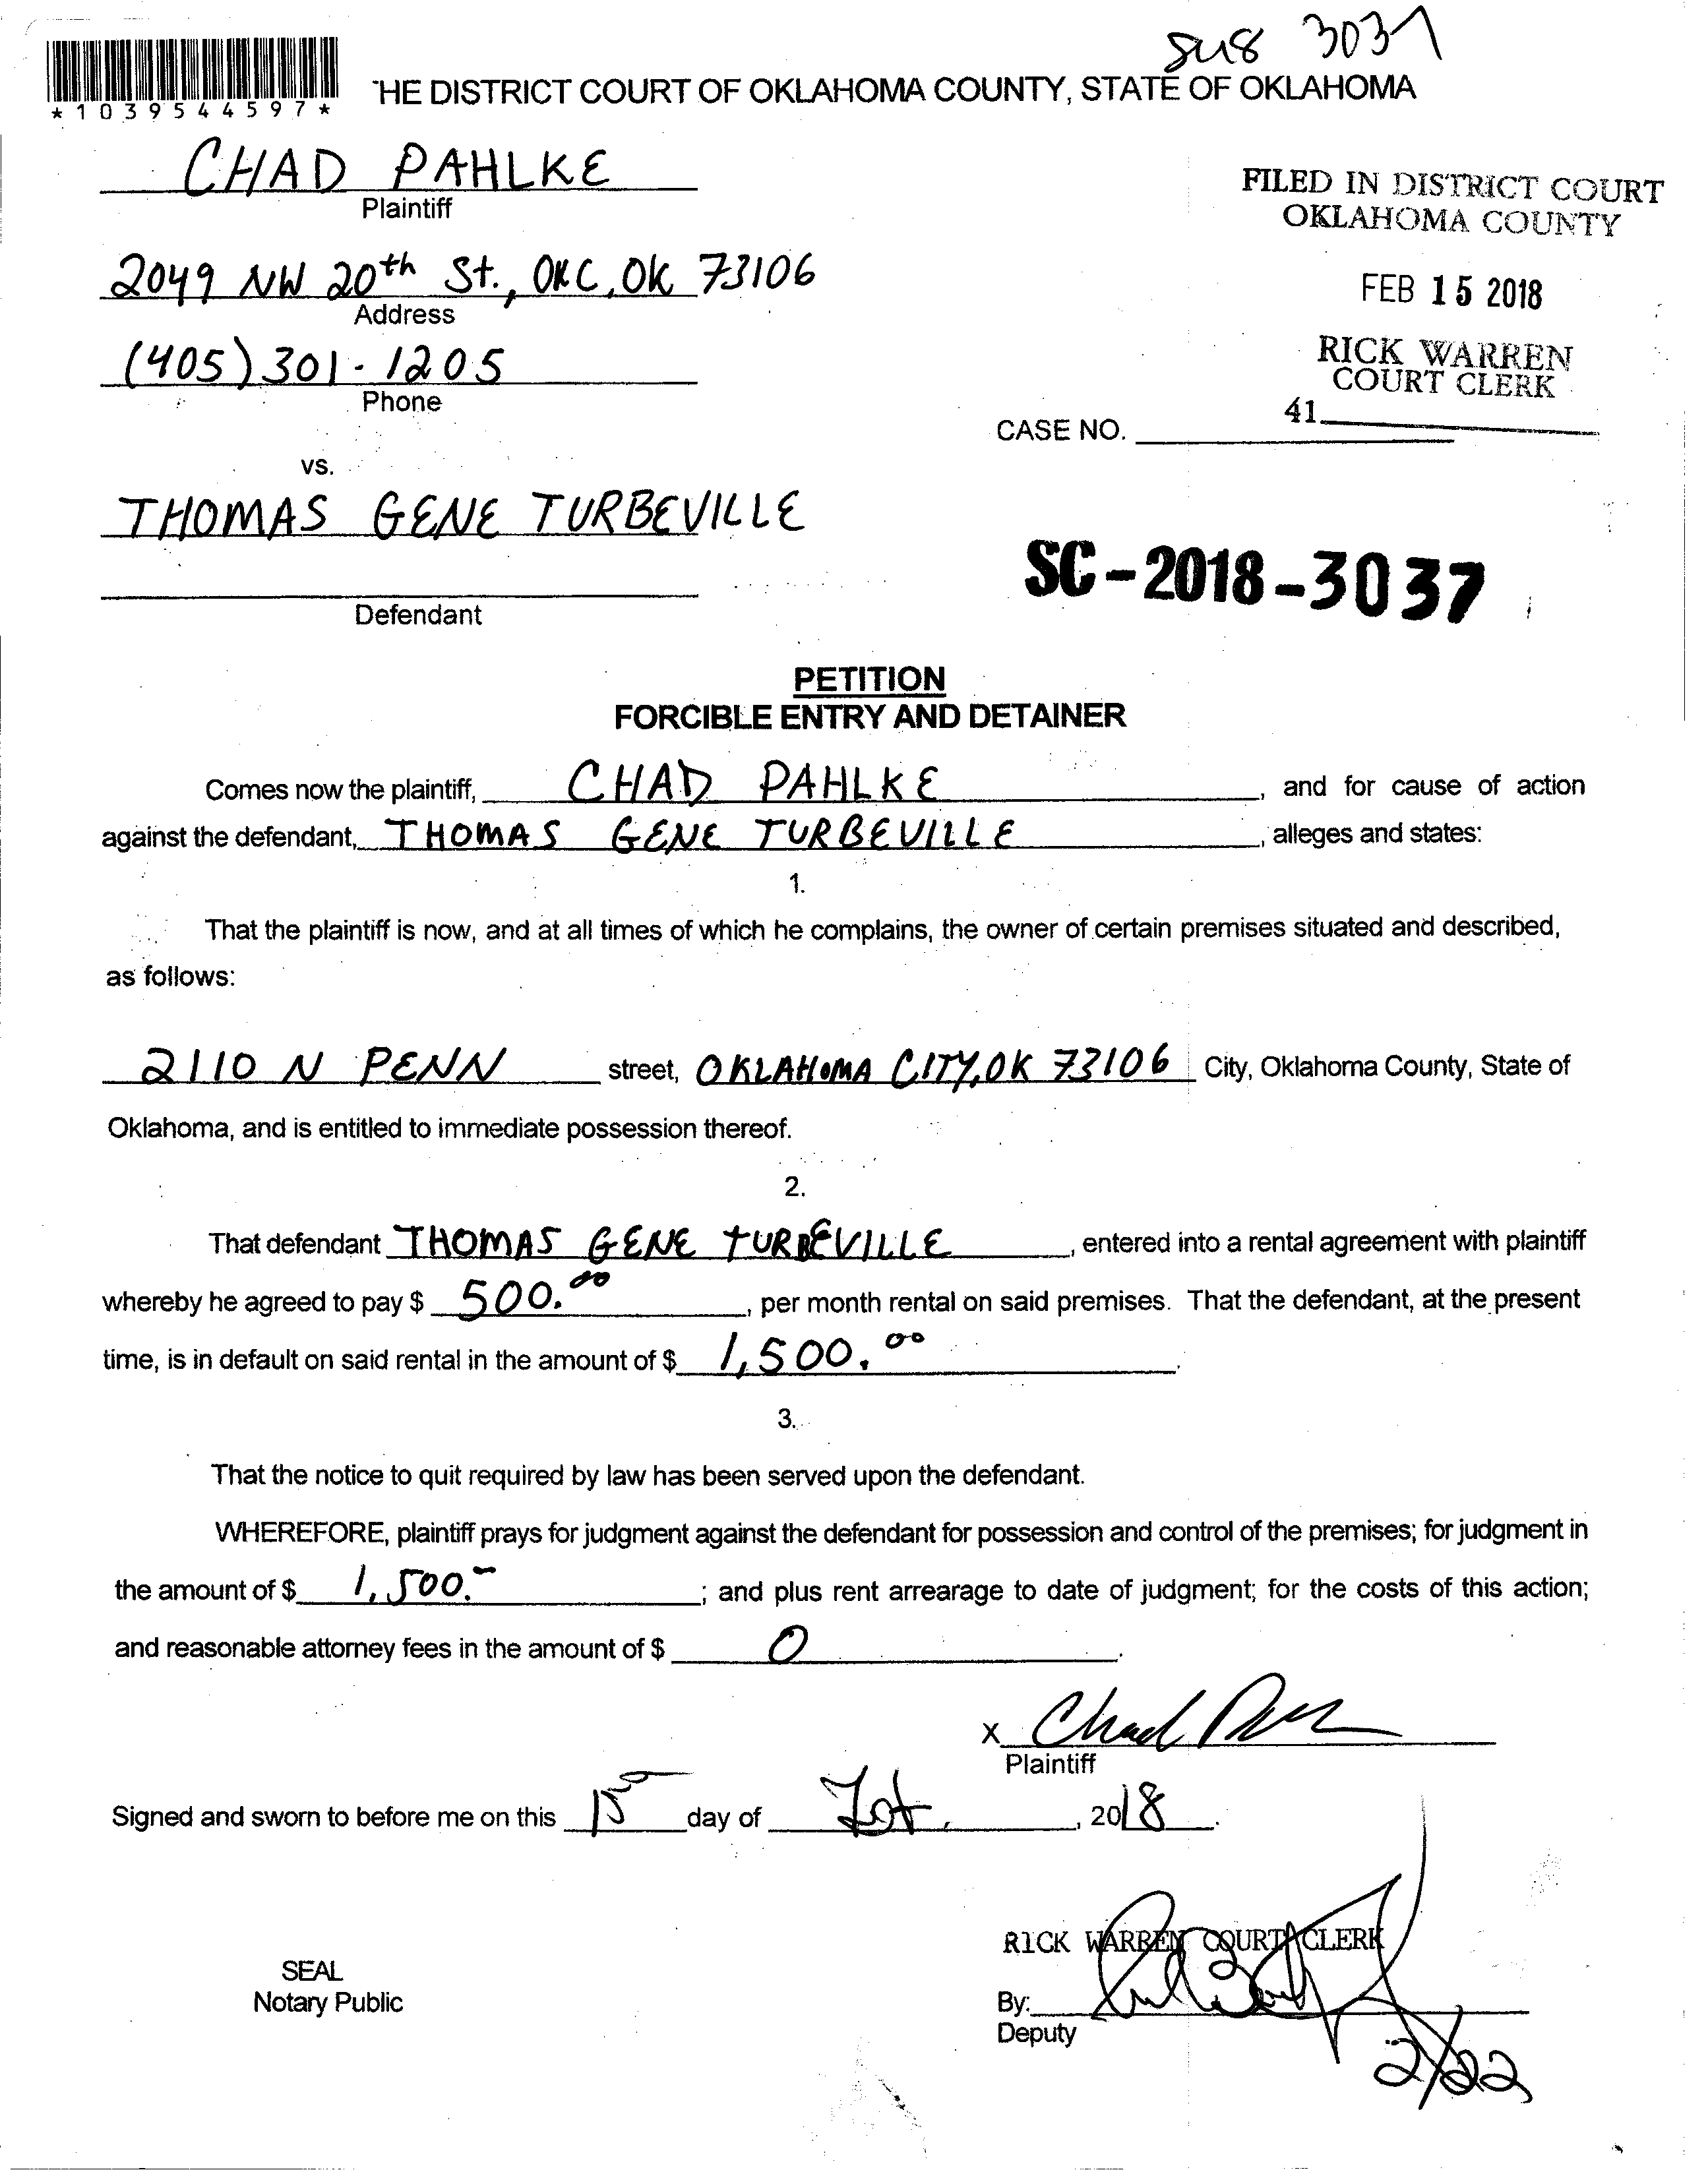 3037
HE DISTRICT COURT OF OKLAHOMA COUNTY, STATE OF OKLAHOMA
*1039544597*
CHAD PAHLKE
Plaintiff
FILED IN DISTRICT COURT
OKLAHOMA COUNTY
2049 NW 20th St., OKC, OK 73106
Address
FEB 15 2018
(405) 301-1205
Phone
RICK WARREN
COURT CLERK
41
CASE NO.
vs.
THOMAS GENE TURBEVILLE
Defendant
SC-2018-3037
PETITION
FORCIBLE ENTRY AND DETAINER
Comes now the plaintiff, CHAD PAHLKE, and for cause of action
against the defendant, THOMAS GENE TURBEVILLE, alleges and states:
1.
That the plaintiff is now, and at all times of which he complains, the owner of certain premises situated and described,
as follows:
2110 N PENN street, OKLAHOMA CITY, OK 73106 City, Oklahoma County, State of
Oklahoma, and is entitled to immediate possession thereof.
2.
That defendant THOMAS GENE TURBEVILLE, entered into a rental agreement with plaintiff
whereby he agreed to pay $ 500.00, per month rental on said premises. That the defendant, at the present
time, is in default on said rental in the amount of $ 1,500.00.
3.
That the notice to quit required by law has been served upon the defendant.
WHEREFORE, plaintiff prays for judgment against the defendant for possession and control of the premises; for judgment in
the amount of $ 1,500.-; and plus rent arrearage to date of judgment; for the costs of this action;
and reasonable attorney fees in the amount of $ 0.
X Chad
Plaintiff
Signed and sworn to before me on this 15 day of , 2018.
RICK WARREN COURT CLERK
SEAL
Notary Public
By:
Deputy
2/22